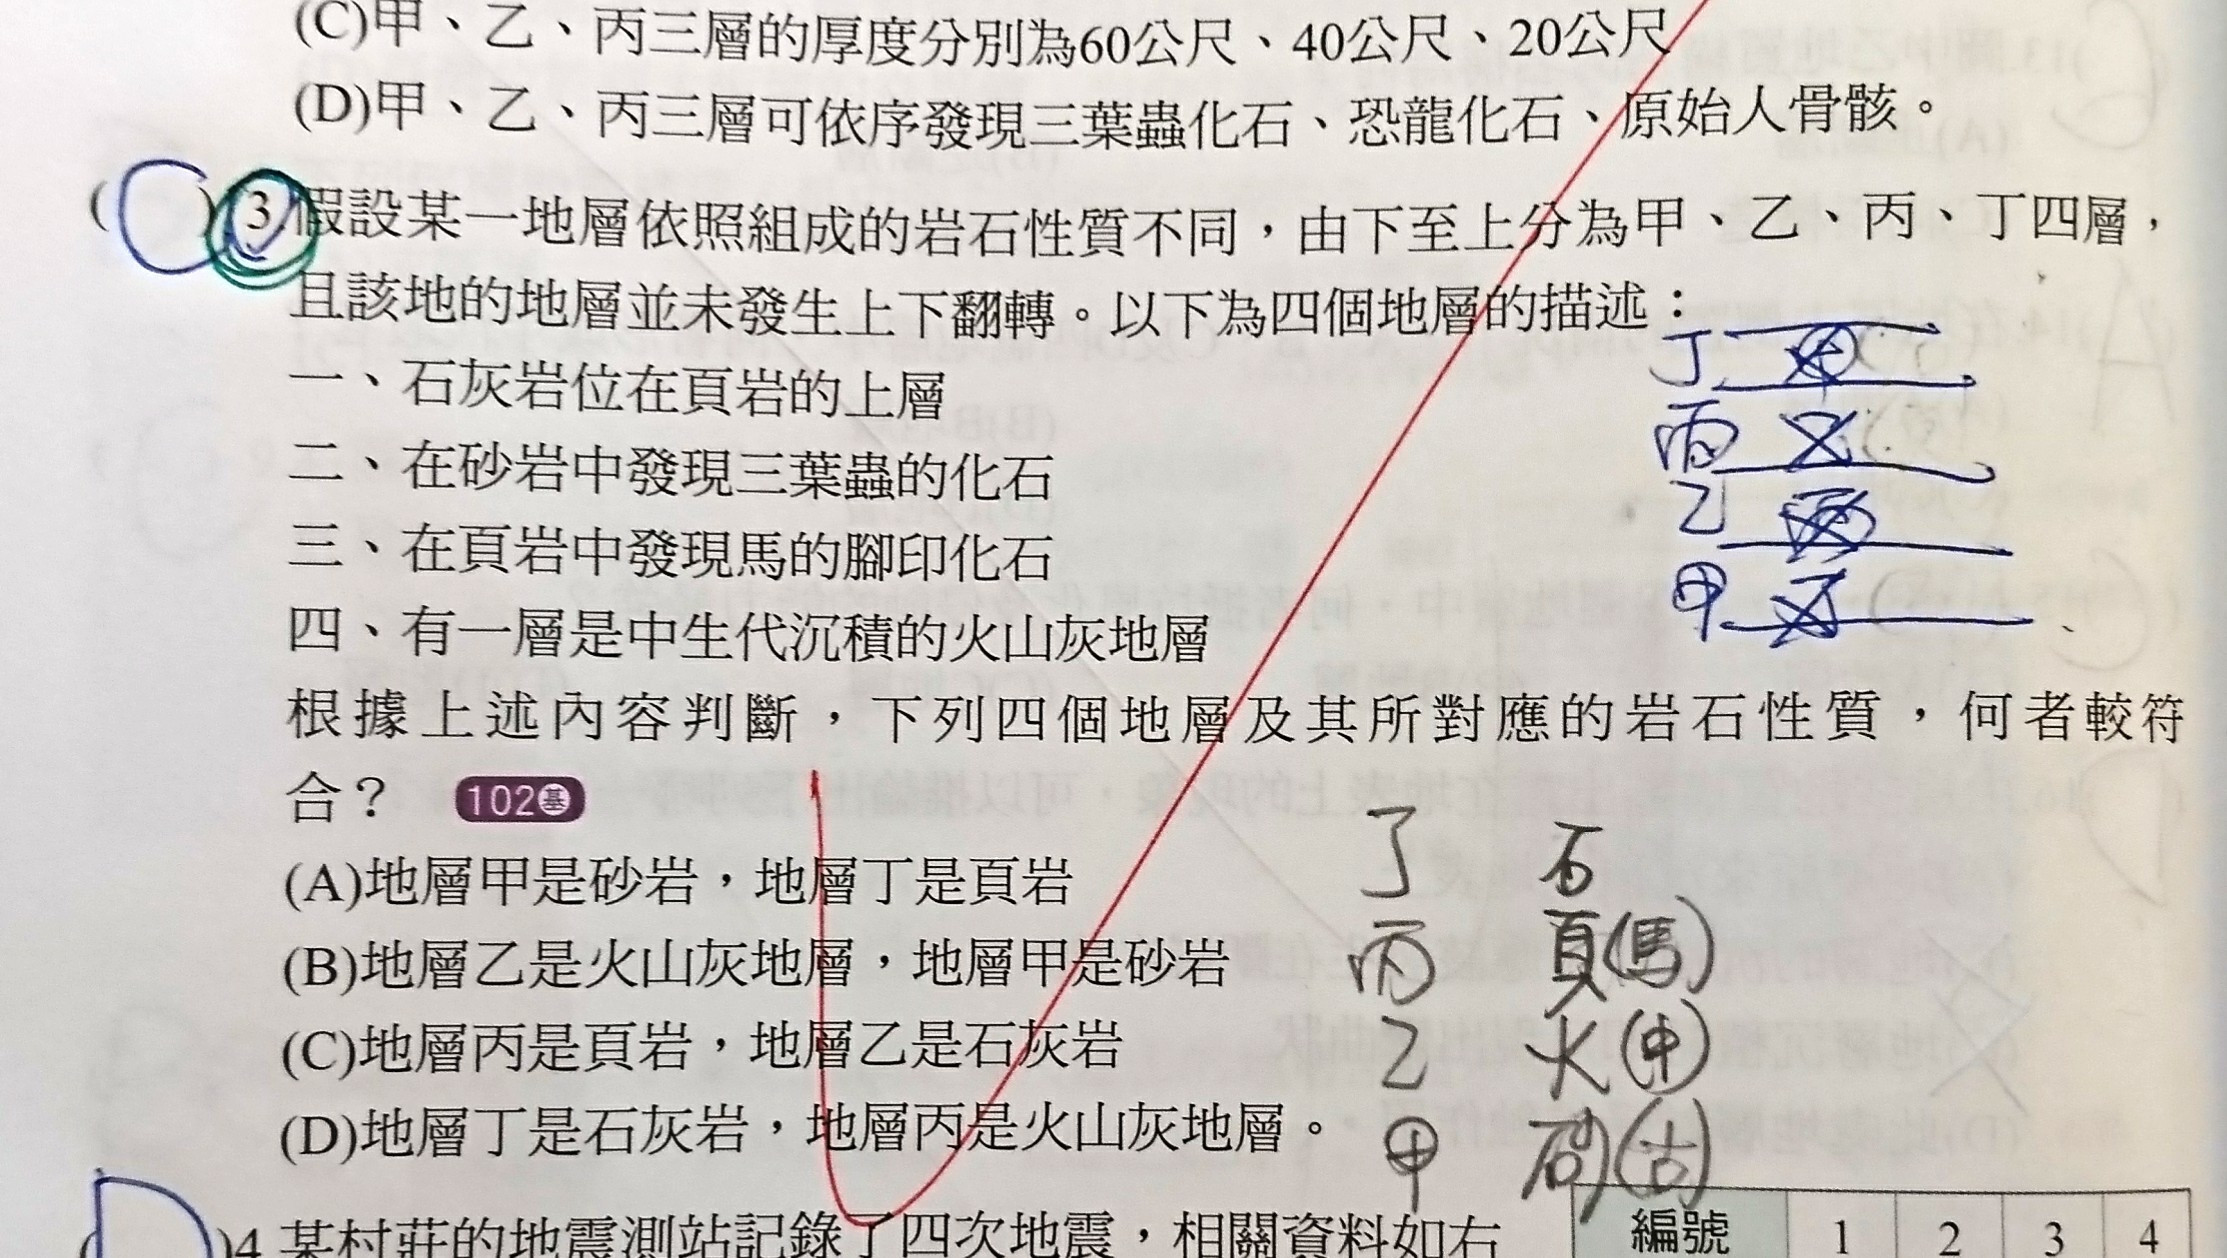 (C)甲、乙、丙三層的厚度分別為60公尺、40公尺、20公尺
(D)甲、乙、丙三層可依序發現三葉蟲化石、恐龍化石、原始人骨骸。
( C )3 假設某一地層依照組成的岩石性質不同，由下至上分為甲、乙、丙、丁四層，
且該地的地層並未發生上下翻轉。以下為四個地層的描述：
一、石灰岩位在頁岩的上層
二、在砂岩中發現三葉蟲的化石
三、在頁岩中發現馬的腳印化石
四、有一層是中生代沉積的火山灰地層
丁
丙
乙
甲
根據上述內容判斷，下列四個地層及其所對應的岩石性質，何者較符
合？ 102基
(A)地層甲是砂岩，地層丁是頁岩
(B)地層乙是火山灰地層，地層甲是砂岩
(C)地層丙是頁岩，地層乙是石灰岩
(D)地層丁是石灰岩，地層丙是火山灰地層。
丁 石
丙 頁(馬)
乙 火(中)
甲 砂(古)
( D )4 某村莊的地震測站記錄了四次地震，相關資料如右
編號 1 2 3 4